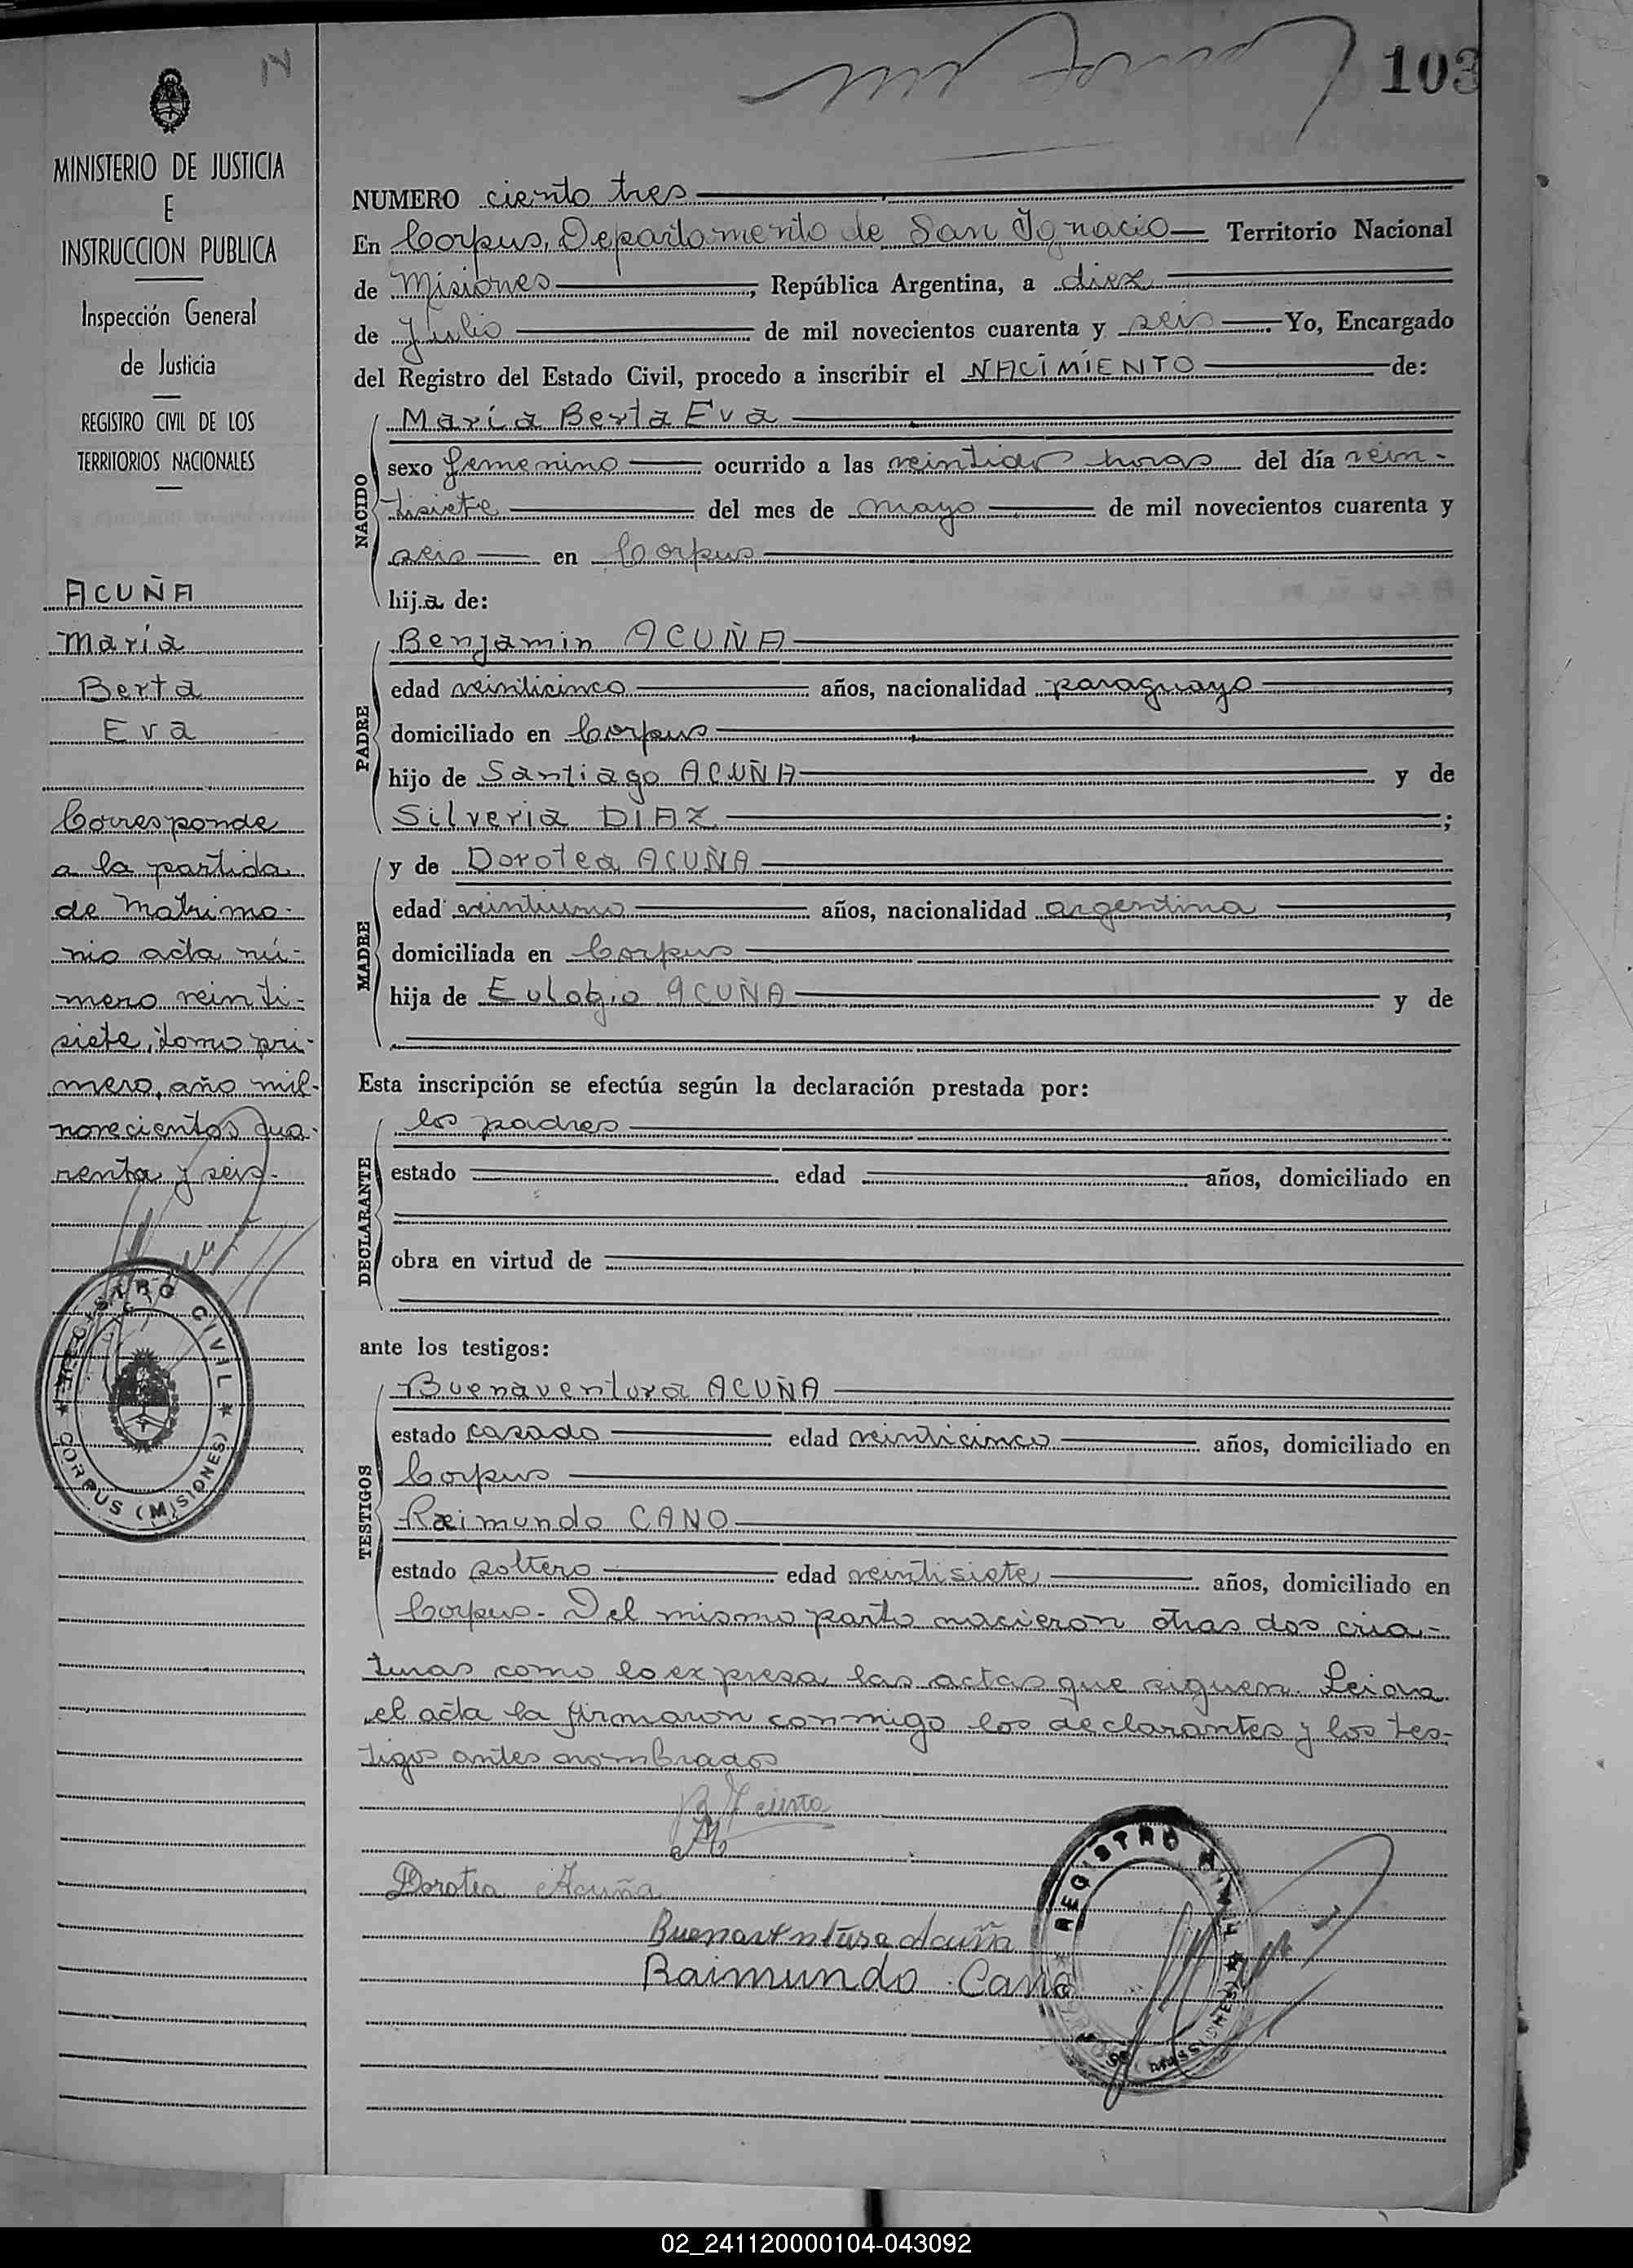 14
103
MINISTERIO DE JUSTICIA
E
INSTRUCCION PUBLICA
Inspección General
de Justicia
REGISTRO CIVIL DE LOS
TERRITORIOS NACIONALES
ACUÑA
María
Berta
Eva
Corresponde
a la partida
de Matrimo-
nio acta nú-
mero veinti-
siete, tomo pri-
mero, año mil-
novecientos cua-
renta y seis.-
REGISTRO CIVIL
CORPUS (MISIONES)
NUMERO ciento tres
En Corpus, Departamento de San Ignacio Territorio Nacional
de Misiones, República Argentina, a diez
de Julio de mil novecientos cuarenta y seis. Yo, Encargado
del Registro del Estado Civil, procedo a inscribir el NACIMIENTO de:
NACIDO
María Berta Eva
sexo femenino ocurrido a las veintidos horas del día vein-
tisiete del mes de mayo de mil novecientos cuarenta y
seis en Corpus
hija de:
PADRE
Benjamin ACUÑA
edad veinticinco años, nacionalidad paraguayo,
domiciliado en Corpus
hijo de Santiago ACUÑA y de
Silveria DIAZ;
MADRE
y de Dorotea ACUÑA
edad veintiuno años, nacionalidad argentina,
domiciliada en Corpus
hija de Eulogio ACUÑA y de
Esta inscripción se efectúa según la declaración prestada por:
DECLARANTE
los padres
estado edad años, domiciliado en
obra en virtud de
ante los testigos:
TESTIGOS
Buenaventura ACUÑA
estado casado edad veinticinco años, domiciliado en
Corpus
Raimundo CANO
estado soltero edad veintisiete años, domiciliado en
Corpus.- Del mismo parto nacieron otras dos cria-
turas como lo expresa las actas que siguen. Leida
el acta la firmaron conmigo los declarantes y los tes-
tigos antes nombrados
Dorotea Acuña
Buenaventura Acuña
Raimundo Cano
REGISTRO CIVIL
02_241120000104-043092